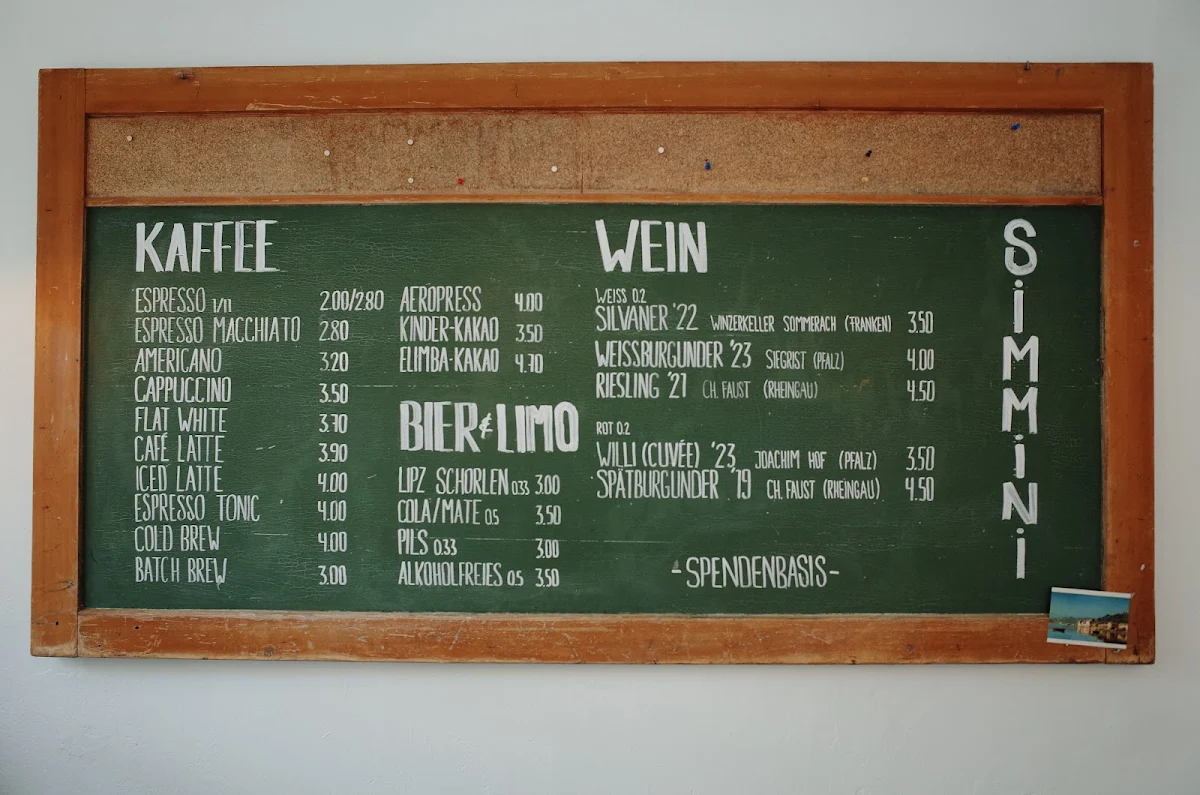 KAFFEE
ESPRESSO I/II 2.00/2.80
ESPRESSO MACCHIATO 2.80
AMERICANO 3.20
CAPPUCCINO 3.50
FLAT WHITE 3.70
CAFÉ LATTE 3.90
ICED LATTE 4.00
ESPRESSO TONIC 4.00
COLD BREW 4.00
BATCH BREW 3.00
AEROPRESS 4.00
KINDER-KAKAO 3.50
ELIMBA-KAKAO 4.70
BIER & LIMO
LIPZ SCHORLEN 0.33 3.00
COLA/MATE 0.5 3.50
PILS 0.33 3.00
ALKOHOLFREIES 0.5 3.50
WEIN
WEISS 0.2
SILVANER '22 WINZERKELLER SOMMERACH (FRANKEN) 3.50
WEISSBURGUNDER '23 SIEGRIST (PFALZ) 4.00
RIESLING '21 CH. FAUST (RHEINGAU) 4.50
ROT 0.2
WILLI (CUVÉE) '23 JOACHIM HOF (PFALZ) 3.50
SPÄTBURGUNDER '19 CH. FAUST (RHEINGAU) 4.50
-SPENDENBASIS-
SiMMiNi